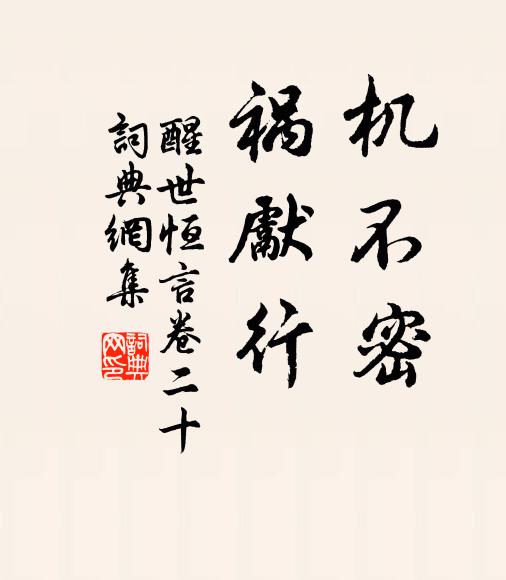 机不密
禍獻行
醒世恒言卷二十
詞典網集
詞典
网印